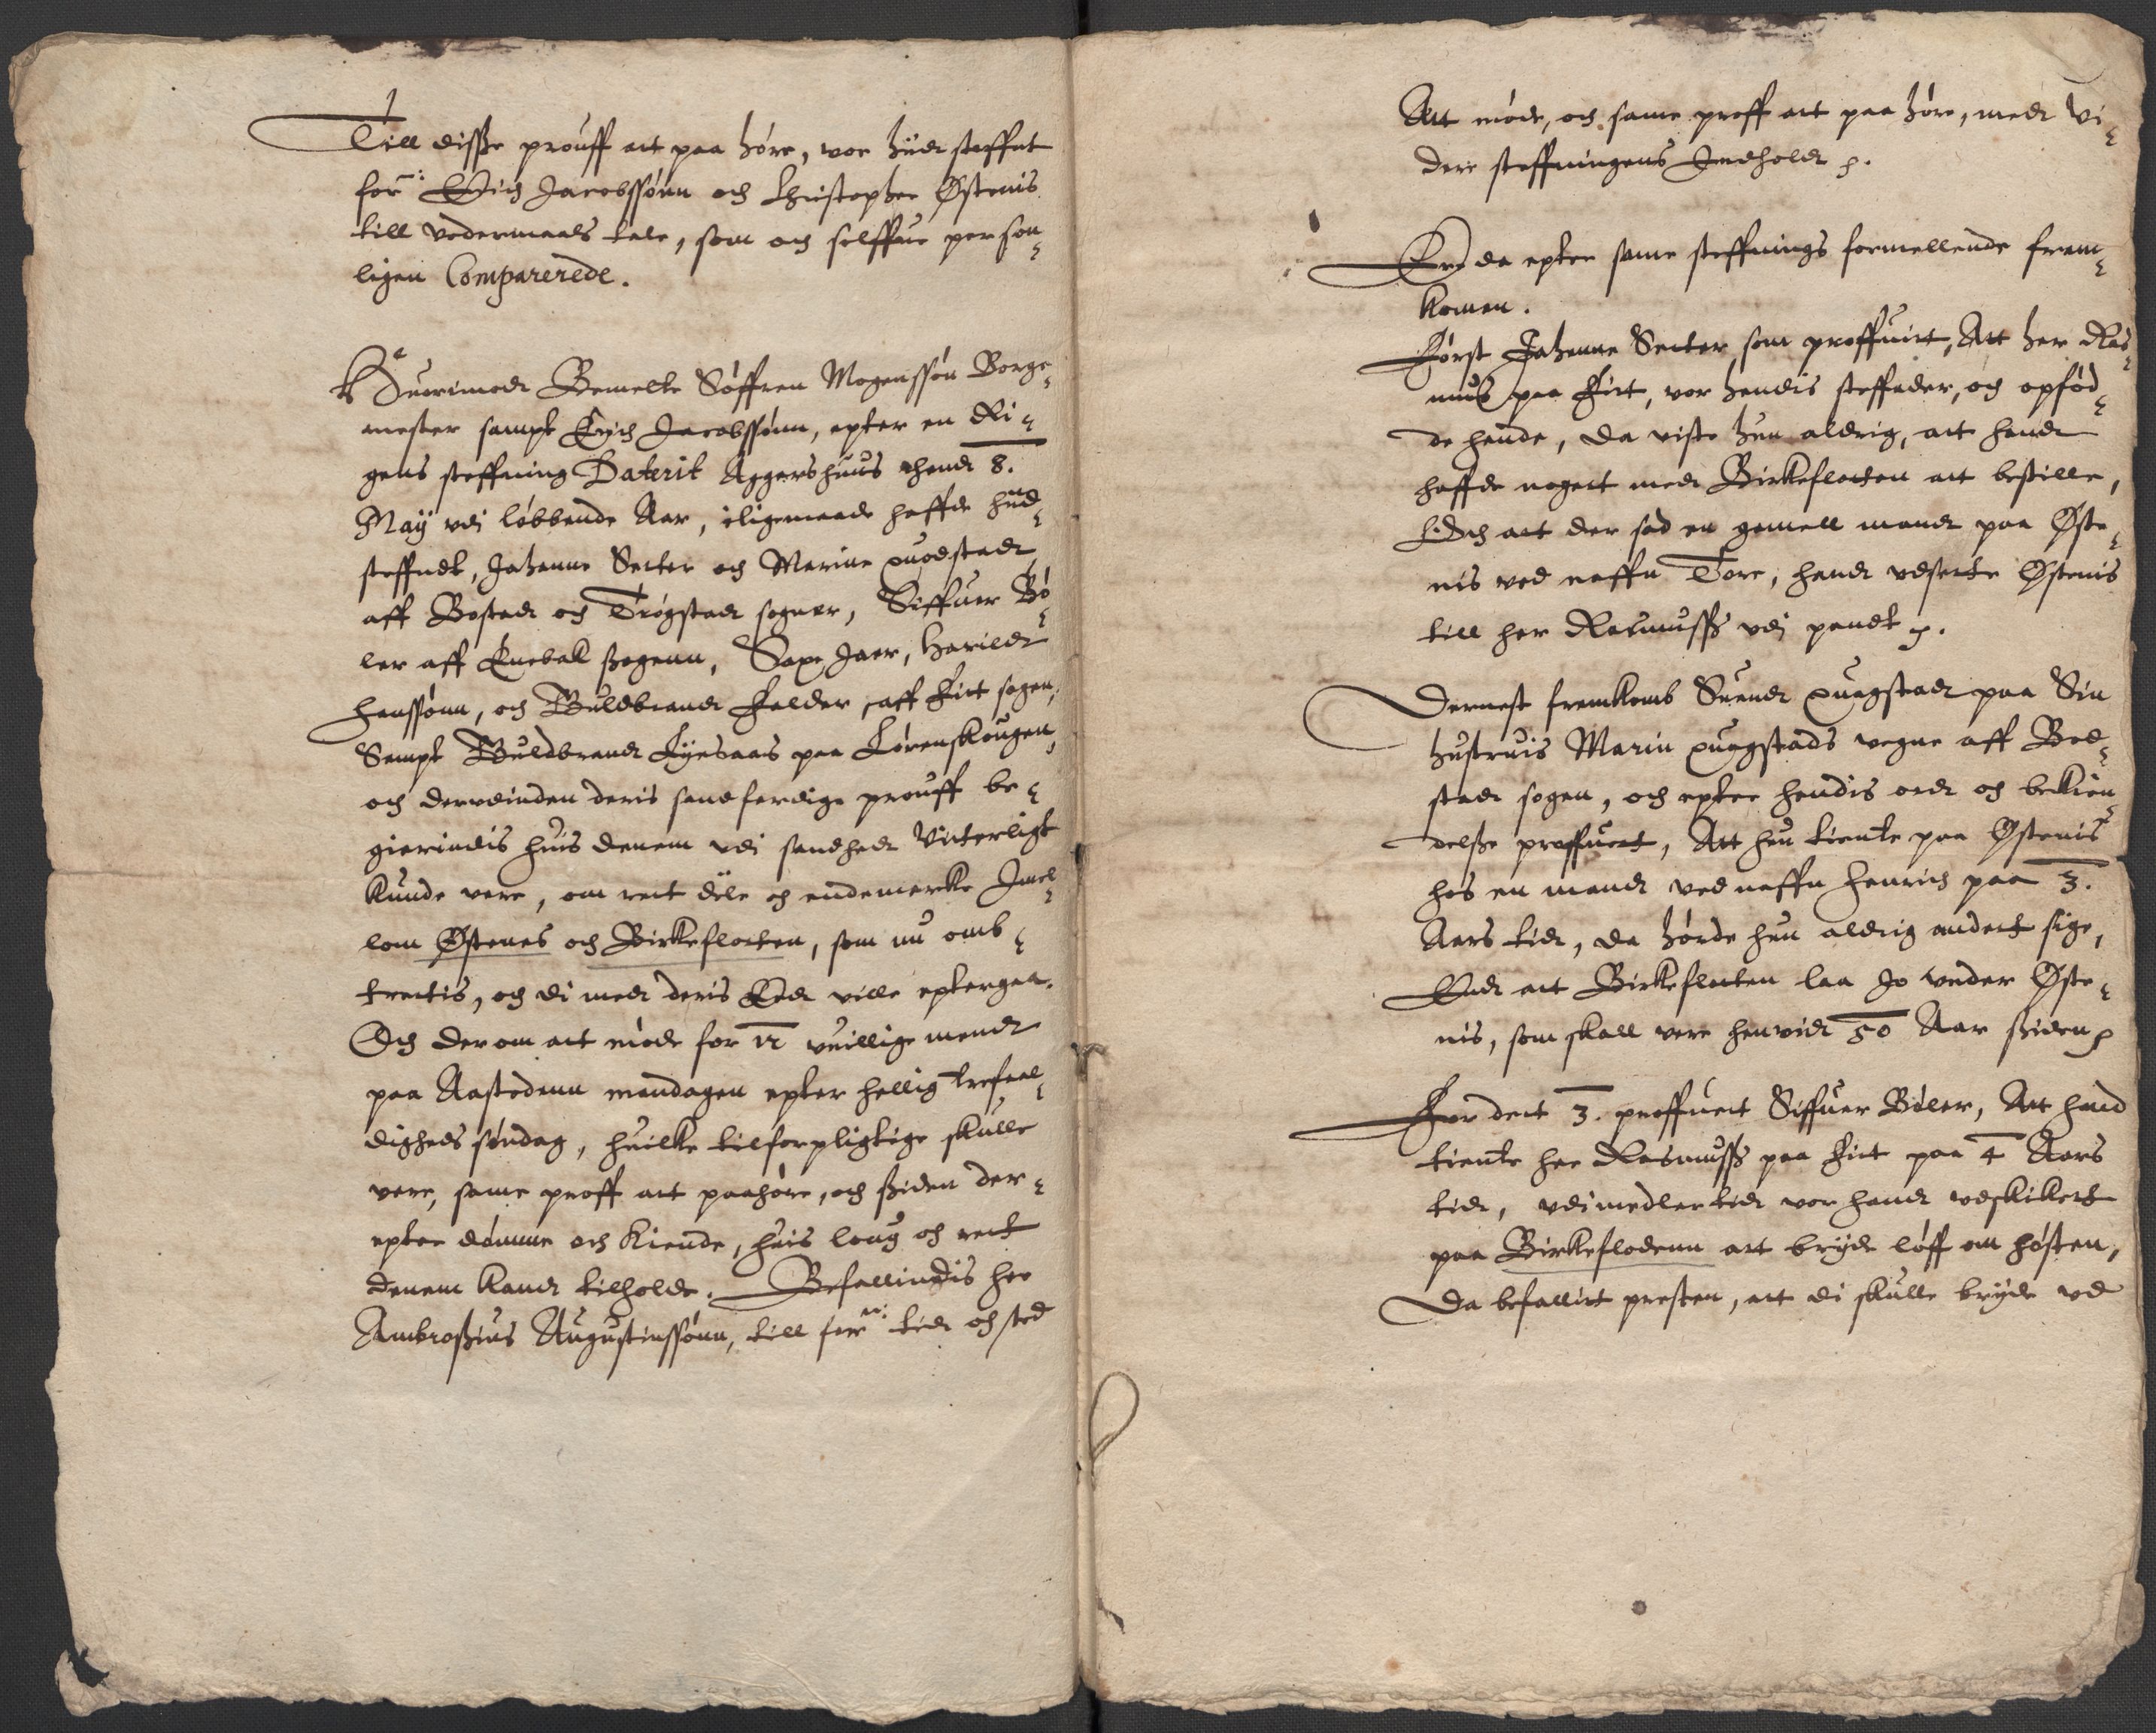 Till disße prouff att paa höre, vor hiid steffnt
for: Erich Jacobssönn och Christopher Östenis
till vedermaals tale, som och selffue person¬
ligen Comparerede.
Huorimod Bemelte Söffren Mogenssön Borge¬
mester sampt Erich Jacobssönn, epter en Ri¬
gens steffning Daterit Aggershuus thend 8.
Maÿ vdi löbbende Aar, iligemaade haffde hid¬
steffndt, Johanne Secter och Marine quostad
aff Bostad och Trögstad sogner, Siffuer Bö¬
ler aff Enebak ßogenn, Saxe Jaer, Harild
Hanssönn, och Guldbrand Felder, aff Fiit sogen,
Sampt Guldbrand Lyesaas paa Lörenskougen,
och dervdinden deris sandferdige prouff be¬
gierindis huis dennem vdi sandhed Vitterligt
kunde vere, om rett dele och endemercke Imel¬
lom Östenes och Birkeflocken, som nu omb¬
trettis, och di med deris Eed ville eptergaa.
Och der om att möde for 12 vuillige mend
paa Aastedenn mandagen epter hellig trefaal¬
digheds söndag, huilke tilforpligtige skulle
vere, same proff att paahöre, och ßiden der¬
epter dömme och kiende, huis loug och rett
dennem kand tilholde. Befallindis her
Ambroßius Augustinssönn, till forn: tid och sted
Att möde, och same proff att paa höre, med Vi¬
dere steffningens Indhold p.
Er da epter same steffnings formellende frem¬
komen.
Först Johanne Secter som proffuitt, Att her Ras¬
mus paa Fiit, vor hendis steffader, och opfød¬
de hende, da viste hun aldrig, att hand
haffde nogett med Birkeflocken att bestille,
Och att der sad en gamell mand paa Öste¬
nis ved naffn Tore, hand vdsette Östenis
till her Rasmusß vdi pandt p.
Dernest fremkomb Suend quagstad paa Sin
hustruis Marin quagstads vegne aff Bod¬
stad sogen, och epter hendis ord och bekien¬
delße proffuert, Att hun tiente paa Östenis
hos en mand ved naffn Henrich paa 3.
Aars tid, da hörde hun aldrig andett sige,
End att Birkeflocken laa Jo vnder Öste¬
nis, som skall vere henvid 50 Aar ßiden p
For dett 3. proffuert Siffuer Böler, Att hand
tiente her Rasmusß paa Fiit paa 4 Aars
tid, vdimedlertid vor hand vdskikett
paa Birkeflodenn att bryde löff om hösten,
Da befallitt presten, att di skulle bryde ved